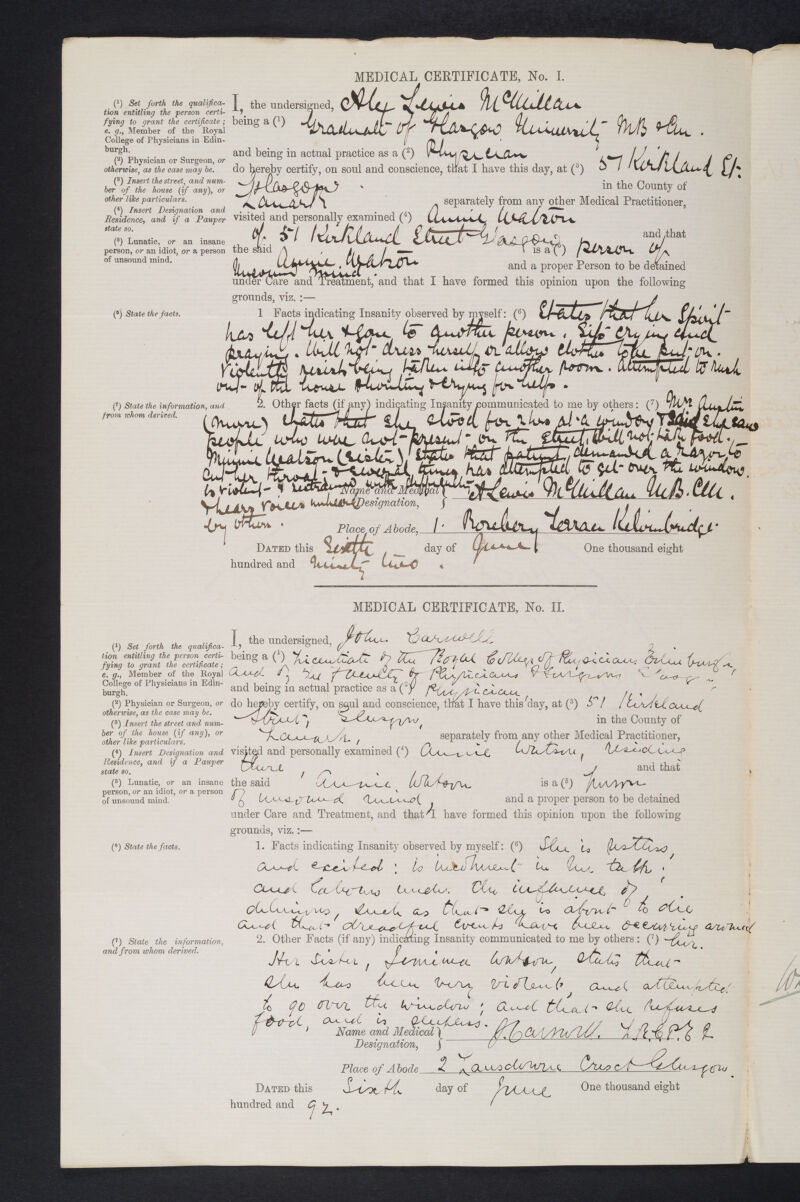 MEDICAL CERTIFICATE, No. I.
(¹) Set forth the qualifica-
tion entitling the person certi-
fying to grant the certificate;
e. g., Member of the Royal
College of Physicians in Edin-
burgh.
(²) Physician or Surgeon, or
otherwise, as the case may be.
(³) Insert the street, and num-
ber of the house (if any), or
other like particulars.
(⁴) Insert Designation and
Residence, and if a Pauper
state so.
(⁵) Lunatic, or an insane
person, or an idiot, or a person
of unsound mind.
I, the undersigned, Alex Lewis McMillan
being a (¹) Graduate of Glasgow University MB & Cm.
and being in actual practice as a (²) Physician
do hereby certify, on soul and conscience, that I have this day, at (³) 57 Kirkland St.
Glasgow. in the County of
Lanark separately from any other Medical Practitioner,
visited and personally examined (⁴) Annie Watson
of 51 Kirkland Street Glasgow and that
the said Annie Watson is a (⁵) person of
unsound mind. and a proper Person to be detained
under Care and Treatment, and that I have formed this opinion upon the following
grounds, viz. :—
(⁶) State the facts.
1 Facts indicating Insanity observed by myself: (⁶) States that her Spirit
has left her & gone to another person. Sits crying and
praying. Will not dress herself or allow clothes to be put on.
Violently resists being taken into another room. Attempted to rush
out of the house shouting & crying for help.
(⁷) State the information, and
from whom derived.
2. Other facts (if any) indicating Insanity communicated to me by others: (⁷) Mrs
(Nurse) states that she stood for 2 hrs at a window & said she saw
people who were not present on the Street, Will not take food.
Minnie Watson (Sister) States that patient demanded a razor to
cut her throat & several times has attempted to get over the window.
Is violent & restrained with
& hears voices unheard
by others.
Name and Medical Designation, } A Lewis McMillan M.B. C.M.
Place of Abode, 1. Rosebery Terrace Kelvinbridge
DATED this Sixth day of June One thousand eight
hundred and ninety two.
MEDICAL CERTIFICATE, No. II.
(¹) Set forth the qualifica-
tion entitling the person certi-
fying to grant the certificate;
e. g., Member of the Royal
College of Physicians in Edin-
burgh.
(²) Physician or Surgeon, or
otherwise, as the case may be.
(³) Insert the street and num-
ber of the house (if any), or
other like particulars.
(⁴) Insert Designation and
Residence, and if a Pauper
state so.
(⁵) Lunatic, or an insane
person, or an idiot, or a person
of unsound mind.
I, the undersigned, John Carswell
being a (¹) Licentiate of the Royal College of Physicians Edinburgh,
and of the Faculty of Physicians & Surgeons Glasgow
and being in actual practice as a (²) Physician,
do hereby certify, on soul and conscience, that I have this day, at (³) 51 Kirkland
Street, Glasgow, in the County of
Lanark, separately from any other Medical Practitioner,
visited and personally examined (⁴) Annie Watson, residing
there, and that
the said Annie Watson is a (⁵) person
of unsound mind, and a proper person to be detained
under Care and Treatment, and that I have formed this opinion upon the following
grounds, viz. :—
(⁶) State the facts.
1. Facts indicating Insanity observed by myself: (⁶) She is restless,
and excited; is incoherent in her talk;
and labours under the influence of
delusions, such as that she is about to die
and that dreadful events have been occurring around
her.
(⁷) State the information,
and from whom derived.
2. Other Facts (if any) indicating Insanity communicated to me by others: (⁷)
Her sister, Jemima Watson, states that
she has been very violent, and attempted
to go over the window; and that she refuses
food, and is sleepless.
Name and Medical Designation, } J. Carswell. L.R.C.P.E
Place of Abode 2 Lansdowne Cresct Glasgow.
DATED this Sixth day of June One thousand eight
hundred and 92.